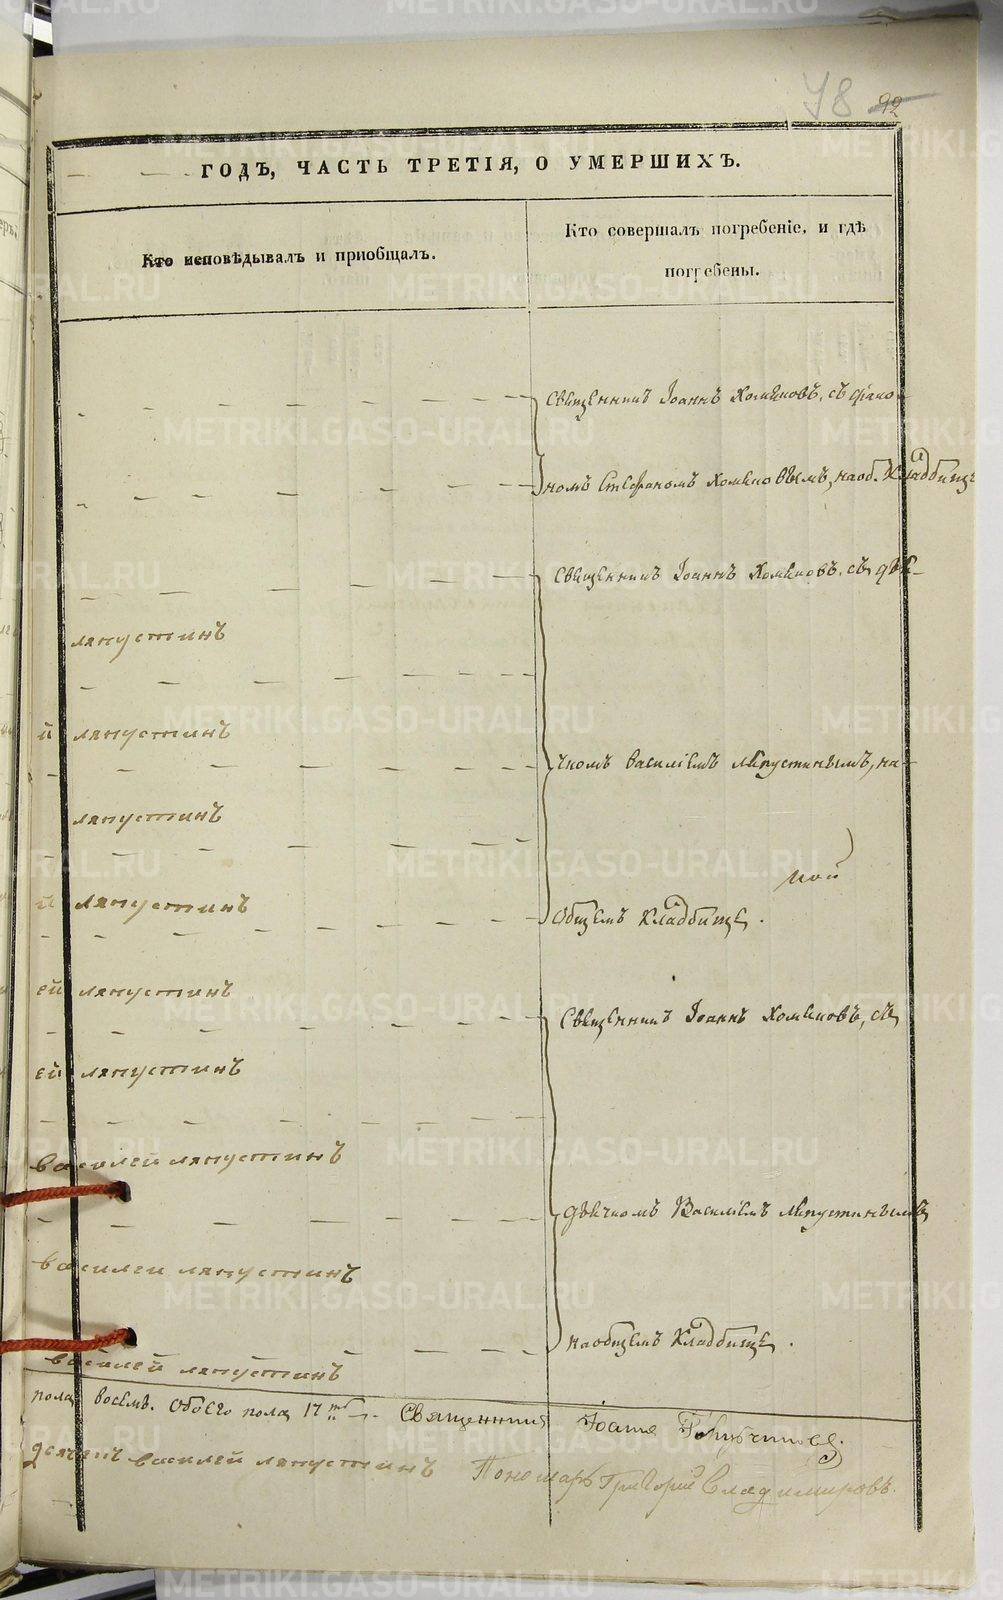 78 92
ГОДЪ, ЧАСТЬ ТРЕТІЯ, О УМЕРШИХЪ.
Кто исповѣдывалъ и приобщалъ.
Кто совершалъ погребеніе, и гдѣ
погребены.
Священникъ Іоаннъ Хомяковъ, съ
номъ Стефаномъ Хомяковымъ, на об. Кладбищѣ
Священникъ Іоаннъ Хомяковъ, съ дья-
ляпустинъ
й ляпустинъ
чкомъ Василіемъ Ляпустинымъ, на
ляпустинъ
й ляпустинъ
Общемъ Кладбище.
ей ляпустинъ
Священникъ Іоаннъ Хомяковъ, съ
ей ляпустинъ
василей ляпустинъ
дьячкомъ Василіемъ Ляпустинымъ
василеи ляпустинъ
на общемъ Кладбище.
василей ляпустинъ
пола восемь. Обоего пола 17 Священникъ
дьячекъ василей ляпустинъ Пономарь Григорий Владимировъ.
METRIKI.GASO-URAL.RU